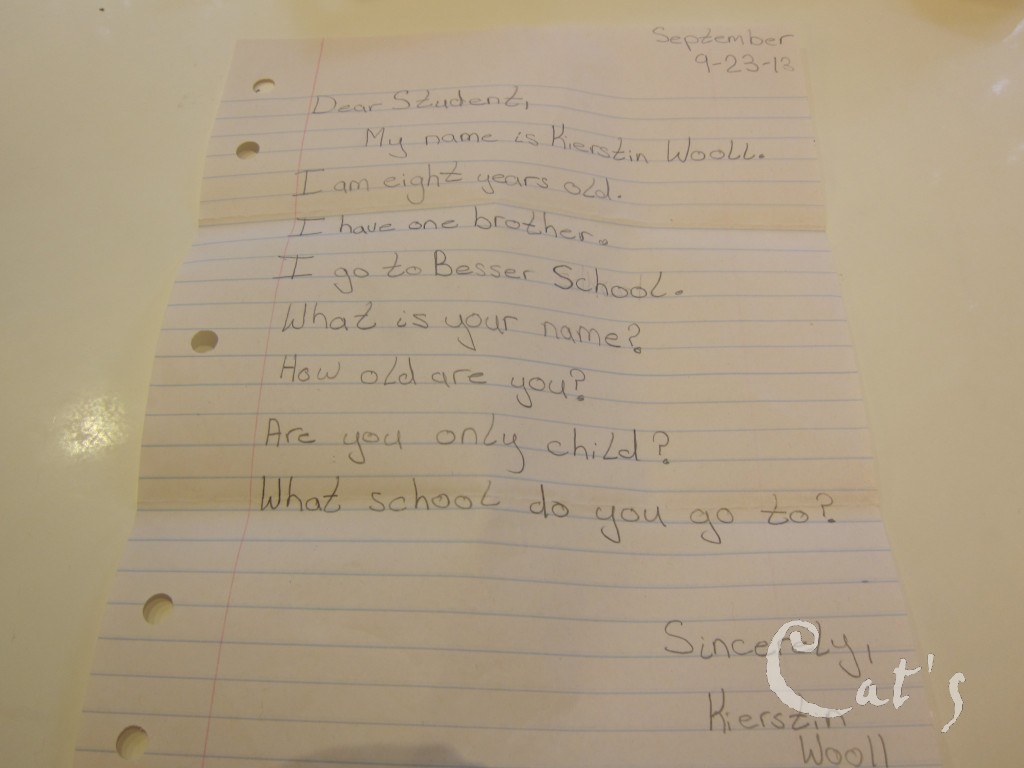 September
9-23-13
Dear Student,
My name is Kierstin Wooll.
I am eight years old.
I have one brother.
I go to Besser School.
What is your name?
How old are you?
Are you only child?
What school do you go to?
Sincerly,
Kierstin
Wooll
Cat's